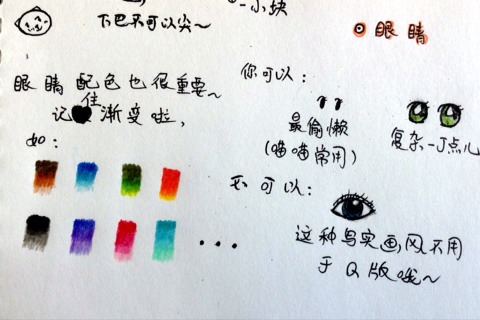 一小块
下巴不可以尖~
眼睛
眼睛配色也很重要~
记住渐变啦,
如:
你可以:
最偷懒
(喵喵常用)
复杂一点儿
不可以:
这种写实画风不用
于Q版哦~
...